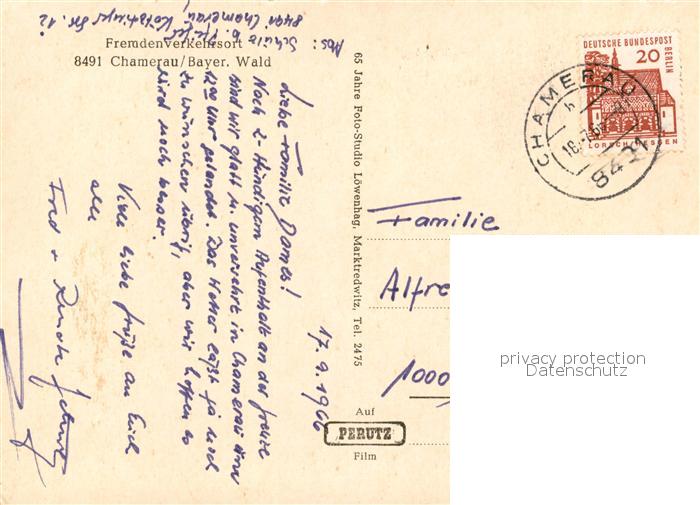 Abs: Schulz b. Kiefel
8491 Chamerau
Kötztinger Str. 12
Fremdenverkehrsort
8491 Chamerau/Bayer. Wald
17.9.1966
Liebe Familie Dames!
Nach 2-stündigem Aufenthalt an der Grenze
sind wir glatt u. unversehrt in Chamerau um
12⁰⁰ Uhr gelandet. Das Wetter läßt ja noch
zu wünschen übrig, aber wir hoffen es
wird noch besser.
Viele liebe Grüße an Euch
alle
Fred u.
65 Jahre Foto-Studio Löwenhag, Marktredwitz, Tel. 2475
Auf
PERUTZ
Film
DEUTSCHE BUNDESPOST
BERLIN
20
LORSCH/HESSEN
CHAMERAU
8491
Familie
Alfre
1000
privacy protection
Datenschutz